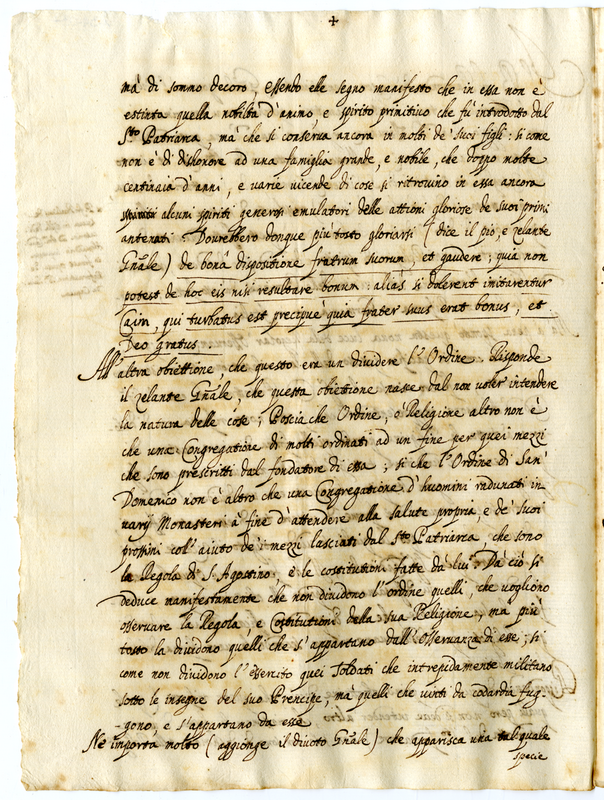 +
mà di sommo decoro, essendo elle segno manifesto che in essa non è
estinta quella nobiltà d'animo, e spirito primitivo che fù introdotto dal
S.to Patriarca, mà che si conserva ancora in molti de' suoi figli: si come
non è di dishonore ad una famiglia grande, e nobile, che doppo molte
centinaia d'anni, e varie vicende di cose si ritrovino in essa ancora
alcuni spiriti generosi emulatori delle attioni gloriose de suoi primi
antenati. Dovrebbero donque più tosto gloriarsi (dice il pio, e zelante
Gñale) de bonâ dispositione fratrum suorum, et gaudere; quia non
potest de hoc eis nisi resultare bonum: alias si dolerent imitarentur
Caim, qui turbatus est precipuè quia frater suus erat bonus, et
Deo gratus
All'altra obiettione, che questo era un dividere l'Ordine. Risponde
il zelante Gñale, che questa obiettione nasce dal non voler intendere
la natura delle cose; Poscia che Ordine, ò Religione altro non è
che una Congregatione di molti ordinati ad un fine per quei mezzi
che sono prescritti dal fondatore di essa; si che l'Ordine di San
Domenico non è altro che una Congregatione d'huomini radunati in
varij Monasteri à fine d'attendere alla salute propria, e de' suoi
prossini coll'aiuto de' i mezzi lasciati dal S.to Patriarca, che sono
la Regola di S. Agostino, e le costitutioni fatte da lui. Da ciò si
deduce manifestamente che non dividono l'ordine quelli, che vogliono
osservare la Regola, e Costitutioni della sua Religione, ma più
tosto la dividono quelli che s'appartano dall'Osservanza di esse; si
come non dividono l'essercito quei Soldati che intrepidamente militano
sotto le insegne del suo Prencipe, mà quelli che vinti da codardia fug-
gono, e s'appartano da esse
Nè importa molto (aggionge il divoto Gñale) che apparisca una tal quale
specie